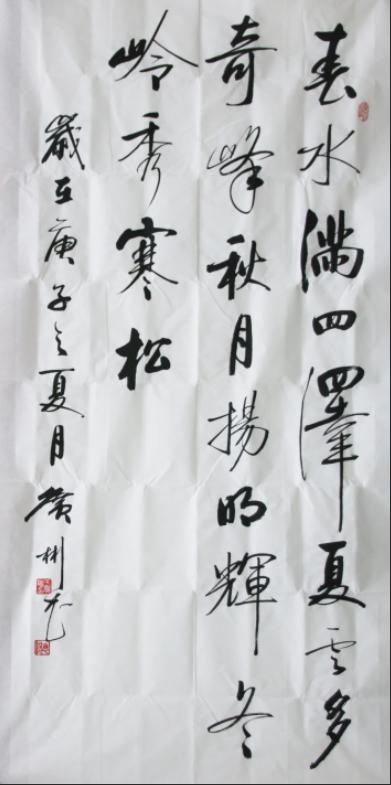 春水滿四澤夏雲多
奇峰秋月揚明輝冬
岭秀寒松
歲在庚子之夏月廣彬書